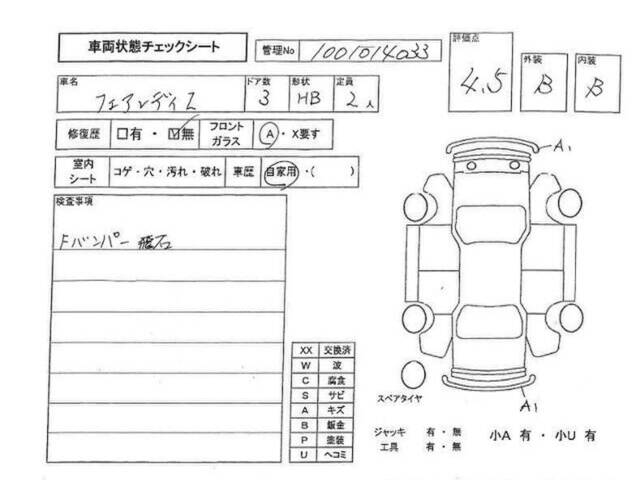 車両状態チェックシート
管理No 1001014033
評価点 4.5
外装 B
内装 B
車名 フェアレディZ
ドア数 3
形状 HB
定員 2人
修復歴 □有・☑無
フロントガラス Ⓐ・X要す
室内シート コゲ・穴・汚れ・破れ
車歴 自家用・( )
検査事項
Fバンパー飛石
A1
XX 交換済
W 波
C 腐食
S サビ
A キズ
B 鈑金
P 塗装
U ヘコミ
スペアタイヤ
A1
ジャッキ 有・無
工具 有・無
小A 有・小U 有